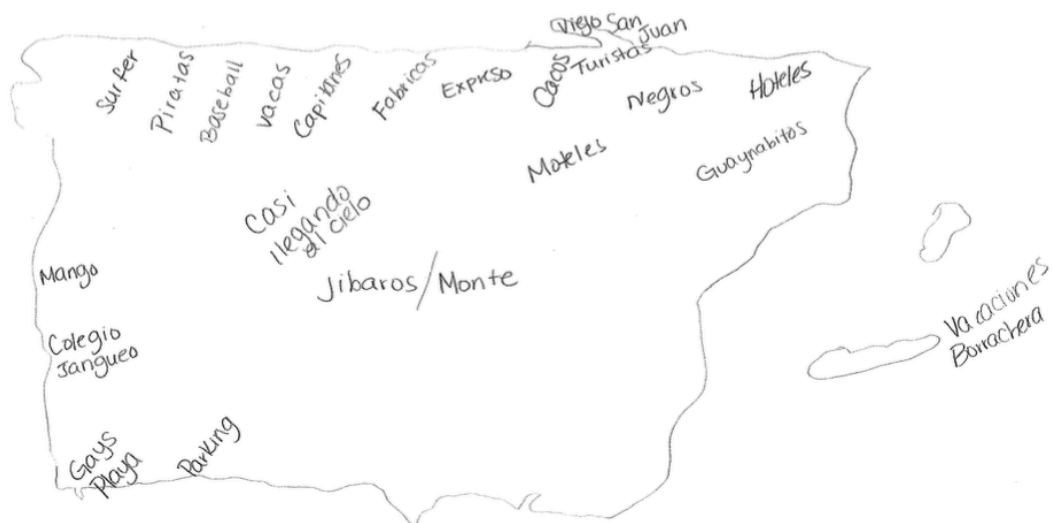 Viejo San Juan
Surfer
Piratas
Baseball
Vacas
Capitanes
Fabricas
Expreso
Cacos
Turistas
Negros
Hoteles
Moteles
Guaynabitos
Casi
llegando
al cielo
Jibaros/Monte
Mango
Colegio
Jangueo
Vacaciones
Borrachera
Gays
Playa
Parking